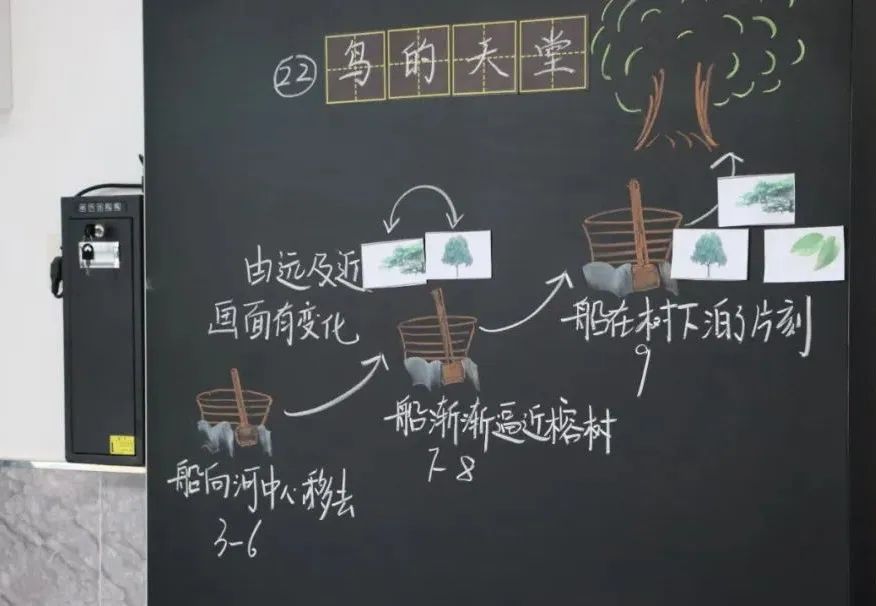 22 鸟的天堂
由远及近
画面有变化
船在树下泊了片刻
9
船渐渐逼近榕树
7-8
船向河中心移去
3-6